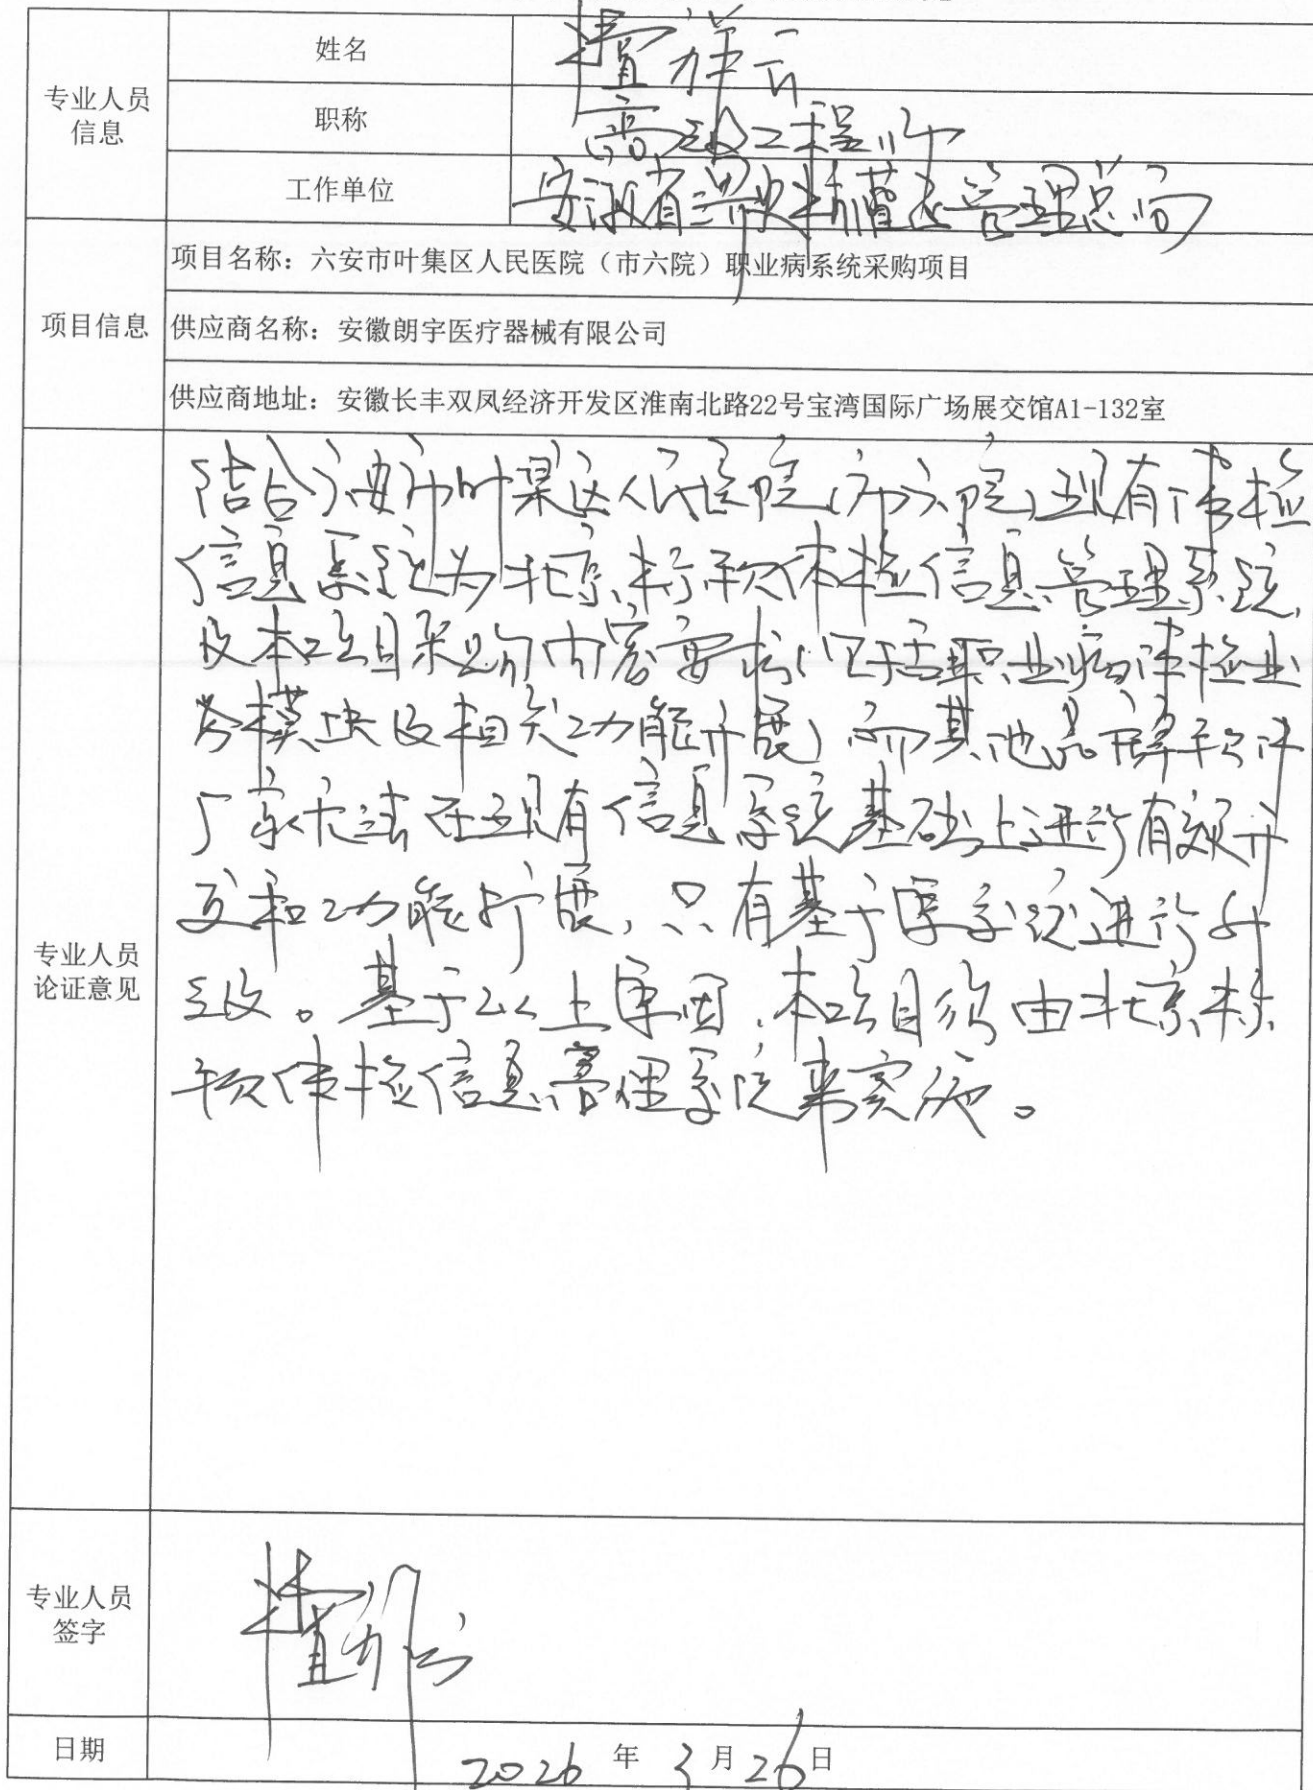 专业人员
信息
姓名
祥云
职称
高级工程师
工作单位
安徽省 管理总局
项目信息
项目名称：六安市叶集区人民医院（市六院）职业病系统采购项目
供应商名称：安徽朗宇医疗器械有限公司
供应商地址：安徽长丰双凤经济开发区淮南北路22号宝湾国际广场展交馆A1-132室
专业人员
论证意见
结合六安市叶集区人民医院（市六院）现有体检
信息系统为北京 软体检信息管理系统，
及本项目采购内容要求（包括职业病体检业
务模块及相关功能开展）而其他品牌软件
厂家无法在现有信息系统基础上进行有效开
发和功能扩展，只有基于原系统进行升
级。基于以上原因，本项目须由北京
软体检信息管理系统来实施。
专业人员
签字
日期
2026 年 3 月 26 日